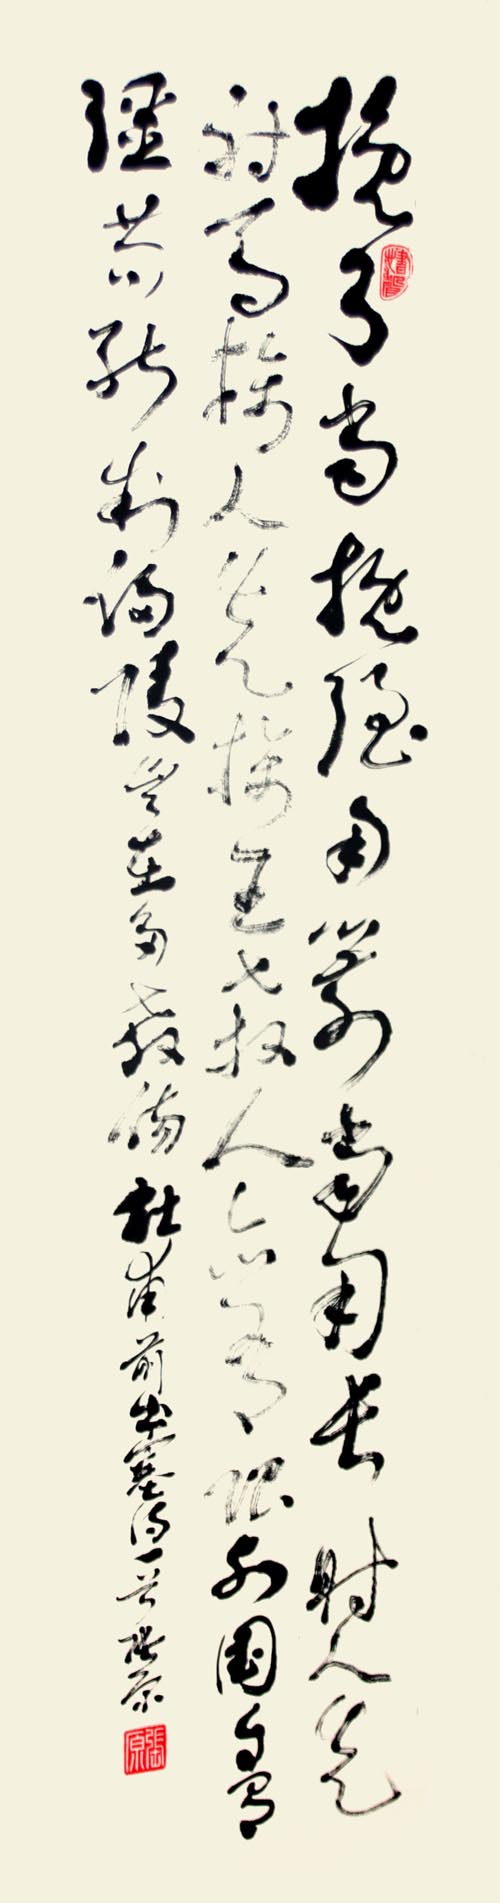 挽弓當挽強用箭當用長射人先
射馬擒人先擒王殺人亦有限列國自有
疆苟能制侵陵豈在多殺傷 杜甫前出塞詩一首 張原
張原